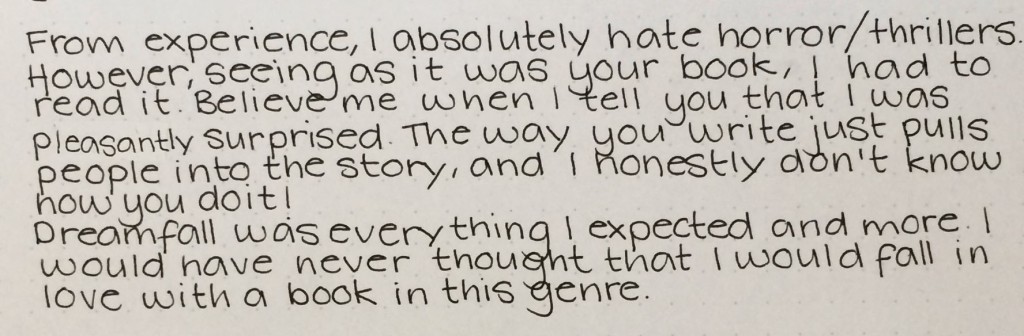 From experience, I absolutely hate horror/thrillers.
However, seeing as it was your book, I had to
read it. Believe me when I tell you that I was
pleasantly surprised. The way you write just pulls
people into the story, and I honestly don't know
how you do it!
Dreamfall was everything I expected and more. I
would have never thought that I would fall in
love with a book in this genre.